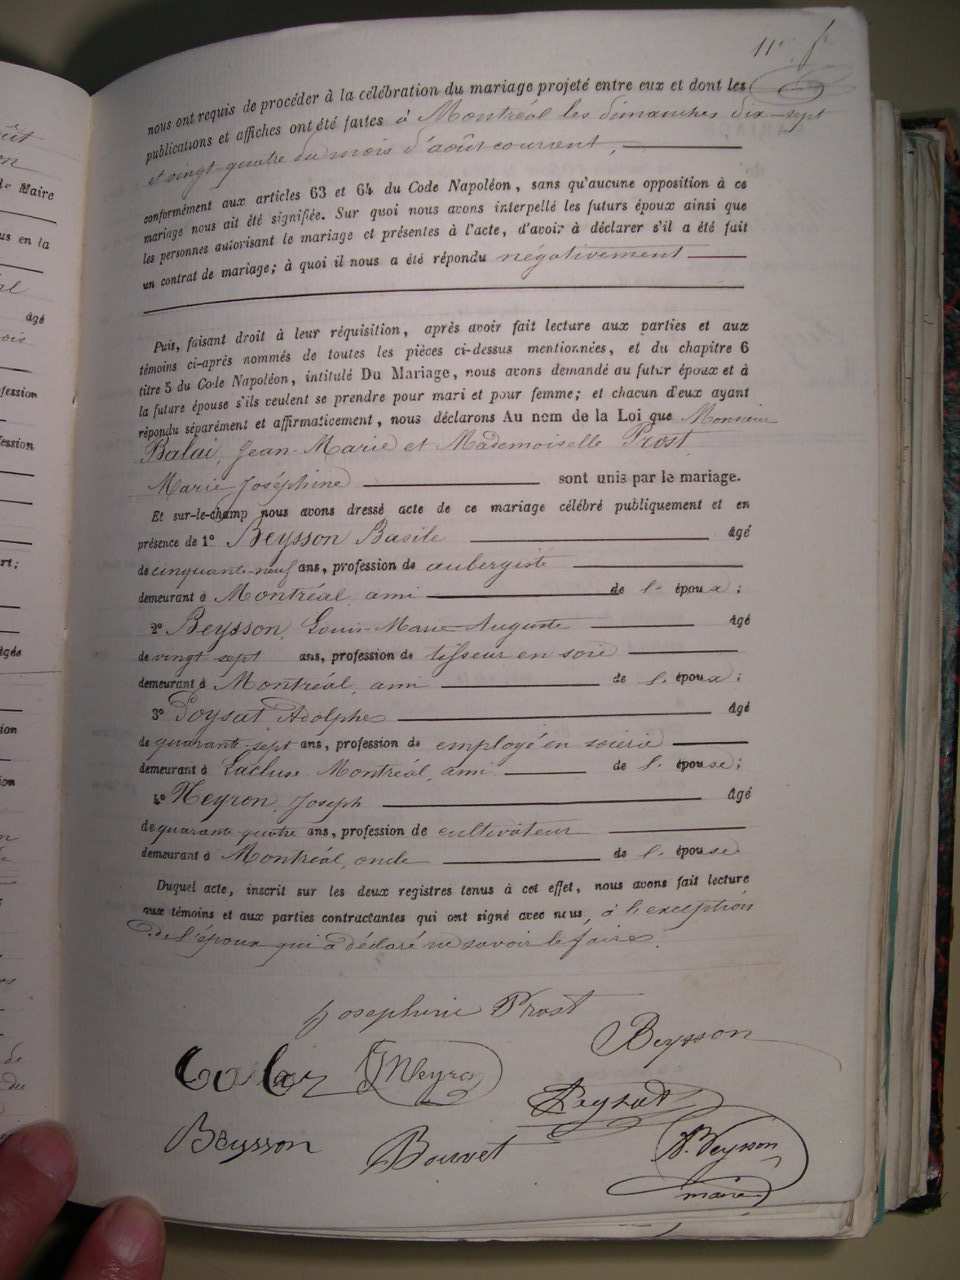 11e f
nous ont requis de procéder à la célébration du mariage projeté entre eux et dont les
publications et affiches ont été faites à Montréal les dimanches dix-sept
et vingt-quatre du mois d'août courrent,
conformément aux articles 63 et 64 du Code Napoléon, sans qu'aucune opposition à ce
mariage nous ait été signifiée. Sur quoi nous avons interpellé les futurs époux ainsi que
les personnes autorisant le mariage et présentes à l'acte, d'avoir à déclarer s'il a été fait
un contrat de mariage; à quoi il nous a été répondu négativement
Puis, faisant droit à leur réquisition, après avoir fait lecture aux parties et aux
témoins ci-après nommés de toutes les pièces ci-dessus mentionnées, et du chapitre 6
titre 5 du Code Napoléon, intitulé Du Mariage, nous avons demandé au futur époux et à
la future épouse s'ils veulent se prendre pour mari et pour femme; et chacun d'eux ayant
répondu séparément et affirmaticement, nous déclarons Au nom de la Loi que Monsieur
Balai, Jean-Marie et Mademoiselle Prost,
Marie Joséphine sont unis par le mariage.
Et sur-le-champ nous avons dressé acte de ce mariage célébré publiquement et en
présence de 1° Beysson Basile âgé
de cinquante-neuf ans, profession de aubergiste
demeurant à Montréal, ami de l'époux;
2° Beysson, Louis-Marie-Auguste âgé
de vingt sept ans, profession de tisseur en soie
demeurant à Montréal, ami de l'époux;
3° Poysat Adolphe âgé
de quarante-sept ans, profession de employé en soierie
demeurant à Lacluse Montréal, ami de l'épouse;
4° Neyron, Joseph âgé
de quarante-quatre ans, profession de cultivateur
demeurant à Montréal, oncle de l'épouse
Duquel acte, inscrit sur les deux registres tenus à cet effet, nous avons fait lecture
aux témoins et aux parties contractantes qui ont signé avec nous, à l'exception
de l'époux qui a déclaré ne savoir le faire.
Josephine Prost
Beysson
Neyro
Beysson
Bouvet
A. Beysson
maire